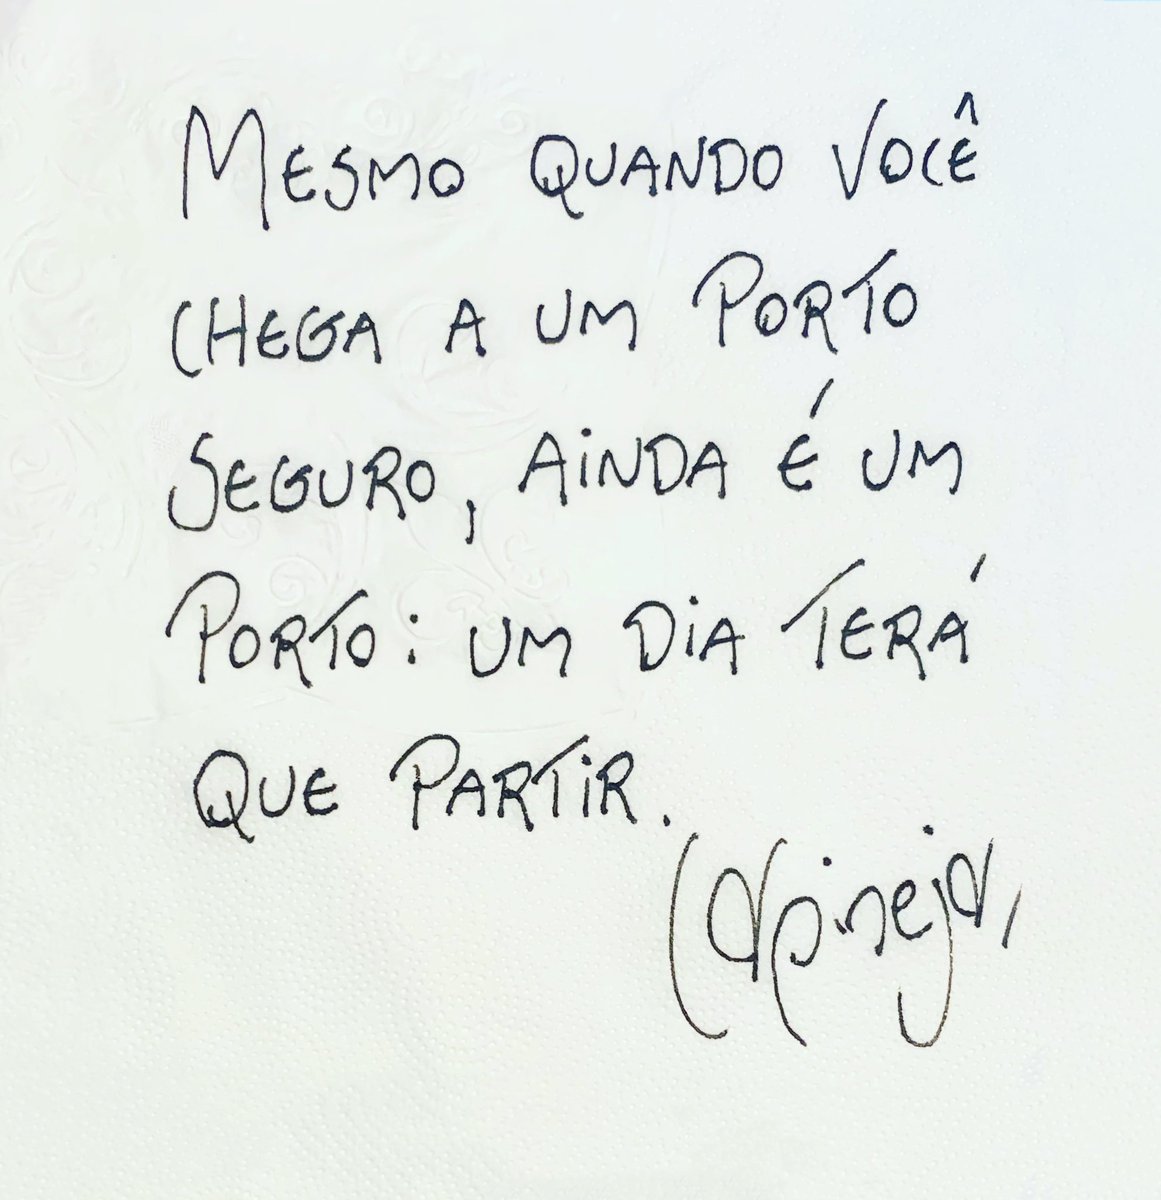 Mesmo quando você
chega a um porto
seguro, ainda é um
porto: um dia terá
que partir.
Carpinejar